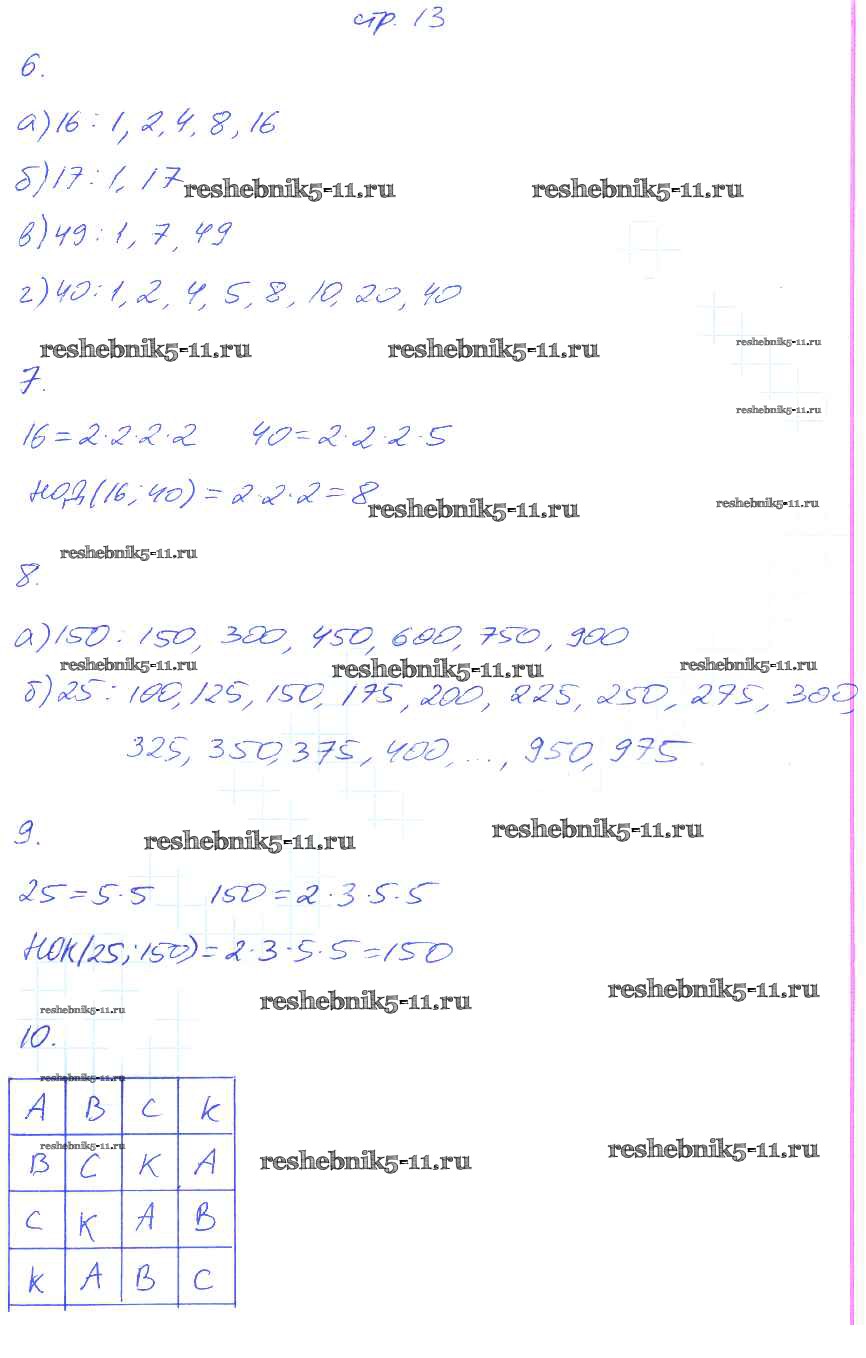 стр. 13
6.
а) 16: 1, 2, 4, 8, 16
б) 17: 1, 17
reshebnik5-11.ru reshebnik5-11.ru
в) 49: 1, 7, 49
г) 40: 1, 2, 4, 5, 8, 10, 20, 40
reshebnik5-11.ru reshebnik5-11.ru reshebnik5-11.ru
7.
reshebnik5-11.ru
16=2·2·2·2 40=2·2·2·5
НОД(16; 40) = 2·2·2=8
reshebnik5-11.ru reshebnik5-11.ru
reshebnik5-11.ru
8.
а) 150: 150, 300, 450, 600, 750, 900
reshebnik5-11.ru reshebnik5-11.ru reshebnik5-11.ru
б) 25: 100, 125, 150, 175, 200, 225, 250, 275, 300,
325, 350, 375, 400, ..., 950, 975
9.
reshebnik5-11.ru reshebnik5-11.ru
25=5·5 150=2·3·5·5
НОК(25; 150)=2·3·5·5=150
reshebnik5-11.ru reshebnik5-11.ru reshebnik5-11.ru
10.
reshebnik5-11.ru
А В С К
reshebnik5-11.ru reshebnik5-11.ru reshebnik5-11.ru
В С К А
С К А В
К А В С